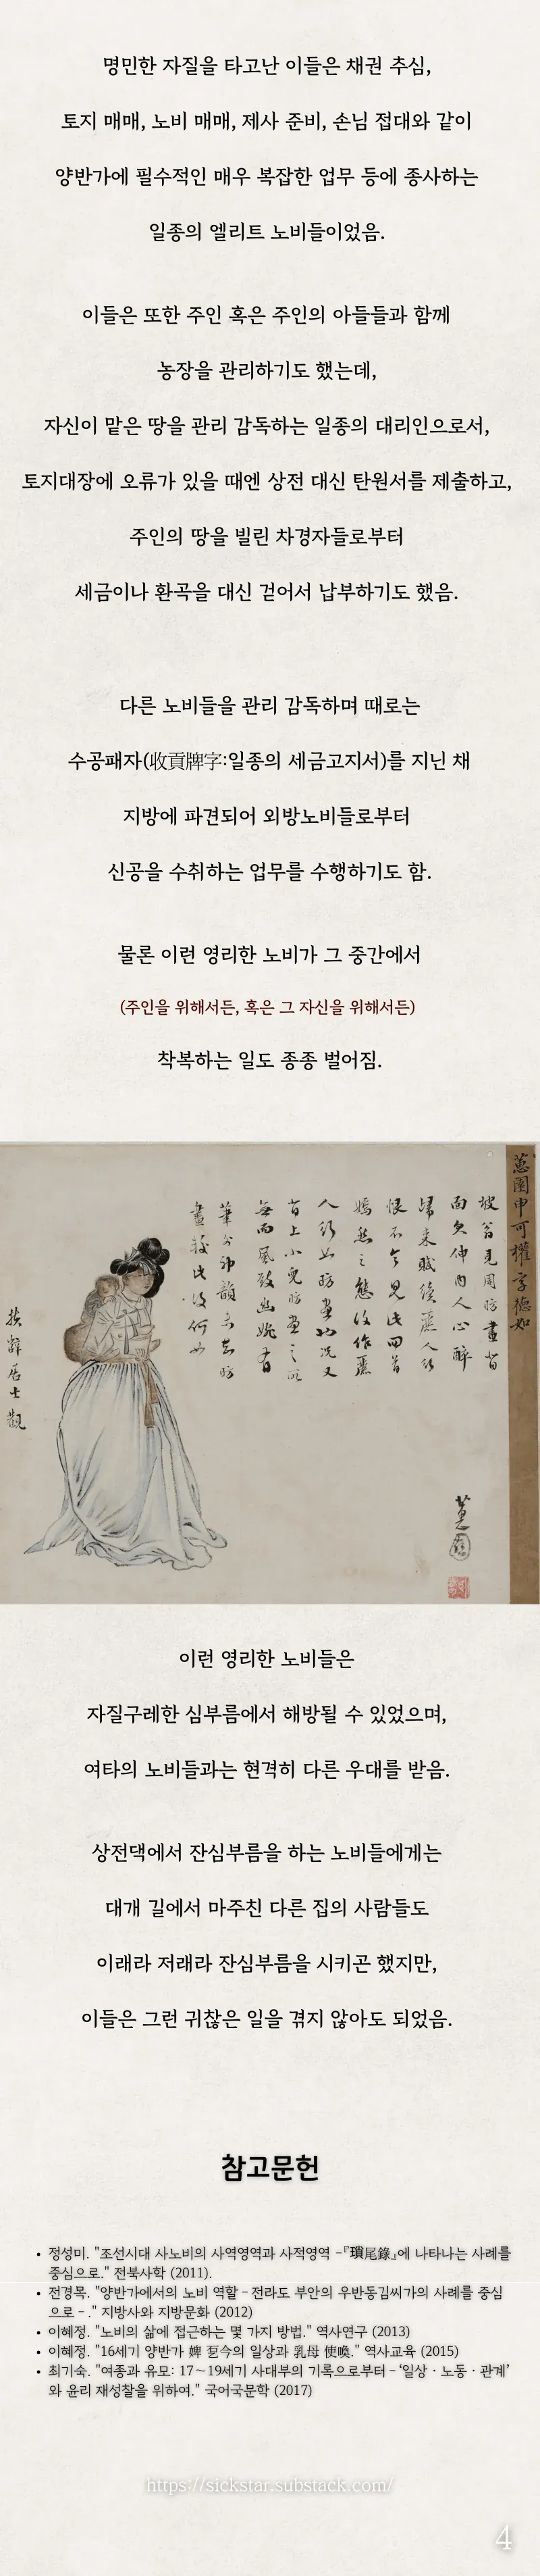 명민한 자질을 타고난 이들은 채권 추심,
토지 매매, 노비 매매, 제사 준비, 손님 접대와 같이
양반가에 필수적인 매우 복잡한 업무 등에 종사하는
일종의 엘리트 노비들이었음.
이들은 또한 주인 혹은 주인의 아들들과 함께
농장을 관리하기도 했는데,
자신이 맡은 땅을 관리 감독하는 일종의 대리인으로서,
토지대장에 오류가 있을 때엔 상전 대신 탄원서를 제출하고,
주인의 땅을 빌린 차경자들로부터
세금이나 환곡을 대신 걷어서 납부하기도 했음.
다른 노비들을 관리 감독하며 때로는
수공패자(收貢牌字:일종의 세금고지서)를 지닌 채
지방에 파견되어 외방노비들로부터
신공을 수취하는 업무를 수행하기도 함.
물론 이런 영리한 노비가 그 중간에서
(주인을 위해서든, 혹은 그 자신을 위해서든)
착복하는 일도 종종 벌어짐.
蕙園申可權字德如
坡翁見周昉畫背
面欠伸內人心醉
歸來賦續麗人行
恨不令見此回首
嫣然之態後作麗
人行如昉畫
首上小兒昉畫之所
無而風致幽婉
筆
畫後何如
蕙園
居士觀
이런 영리한 노비들은
자질구레한 심부름에서 해방될 수 있었으며,
여타의 노비들과는 현격히 다른 우대를 받음.
상전댁에서 잔심부름을 하는 노비들에게는
대개 길에서 마주친 다른 집의 사람들도
이래라 저래라 잔심부름을 시키곤 했지만,
이들은 그런 귀찮은 일을 겪지 않아도 되었음.
참고문헌
• 정성미. "조선시대 사노비의 사역영역과 사적영역 -『瑣尾錄』에 나타나는 사례를
중심으로." 전북사학 (2011).
• 전경목. "양반가에서의 노비 역할 – 전라도 부안의 우반동김씨가의 사례를 중심
으로 – ." 지방사와 지방문화 (2012)
• 이혜정. "노비의 삶에 접근하는 몇 가지 방법." 역사연구 (2013)
• 이혜정. "16세기 양반가 婢 㐣今의 일상과 乳母 使喚." 역사교육 (2015)
• 최기숙. "여종과 유모: 17～19세기 사대부의 기록으로부터 – ‘일상 · 노동 · 관계’
와 윤리 재성찰을 위하여." 국어국문학 (2017)
https://sickstar.substack.com/
4